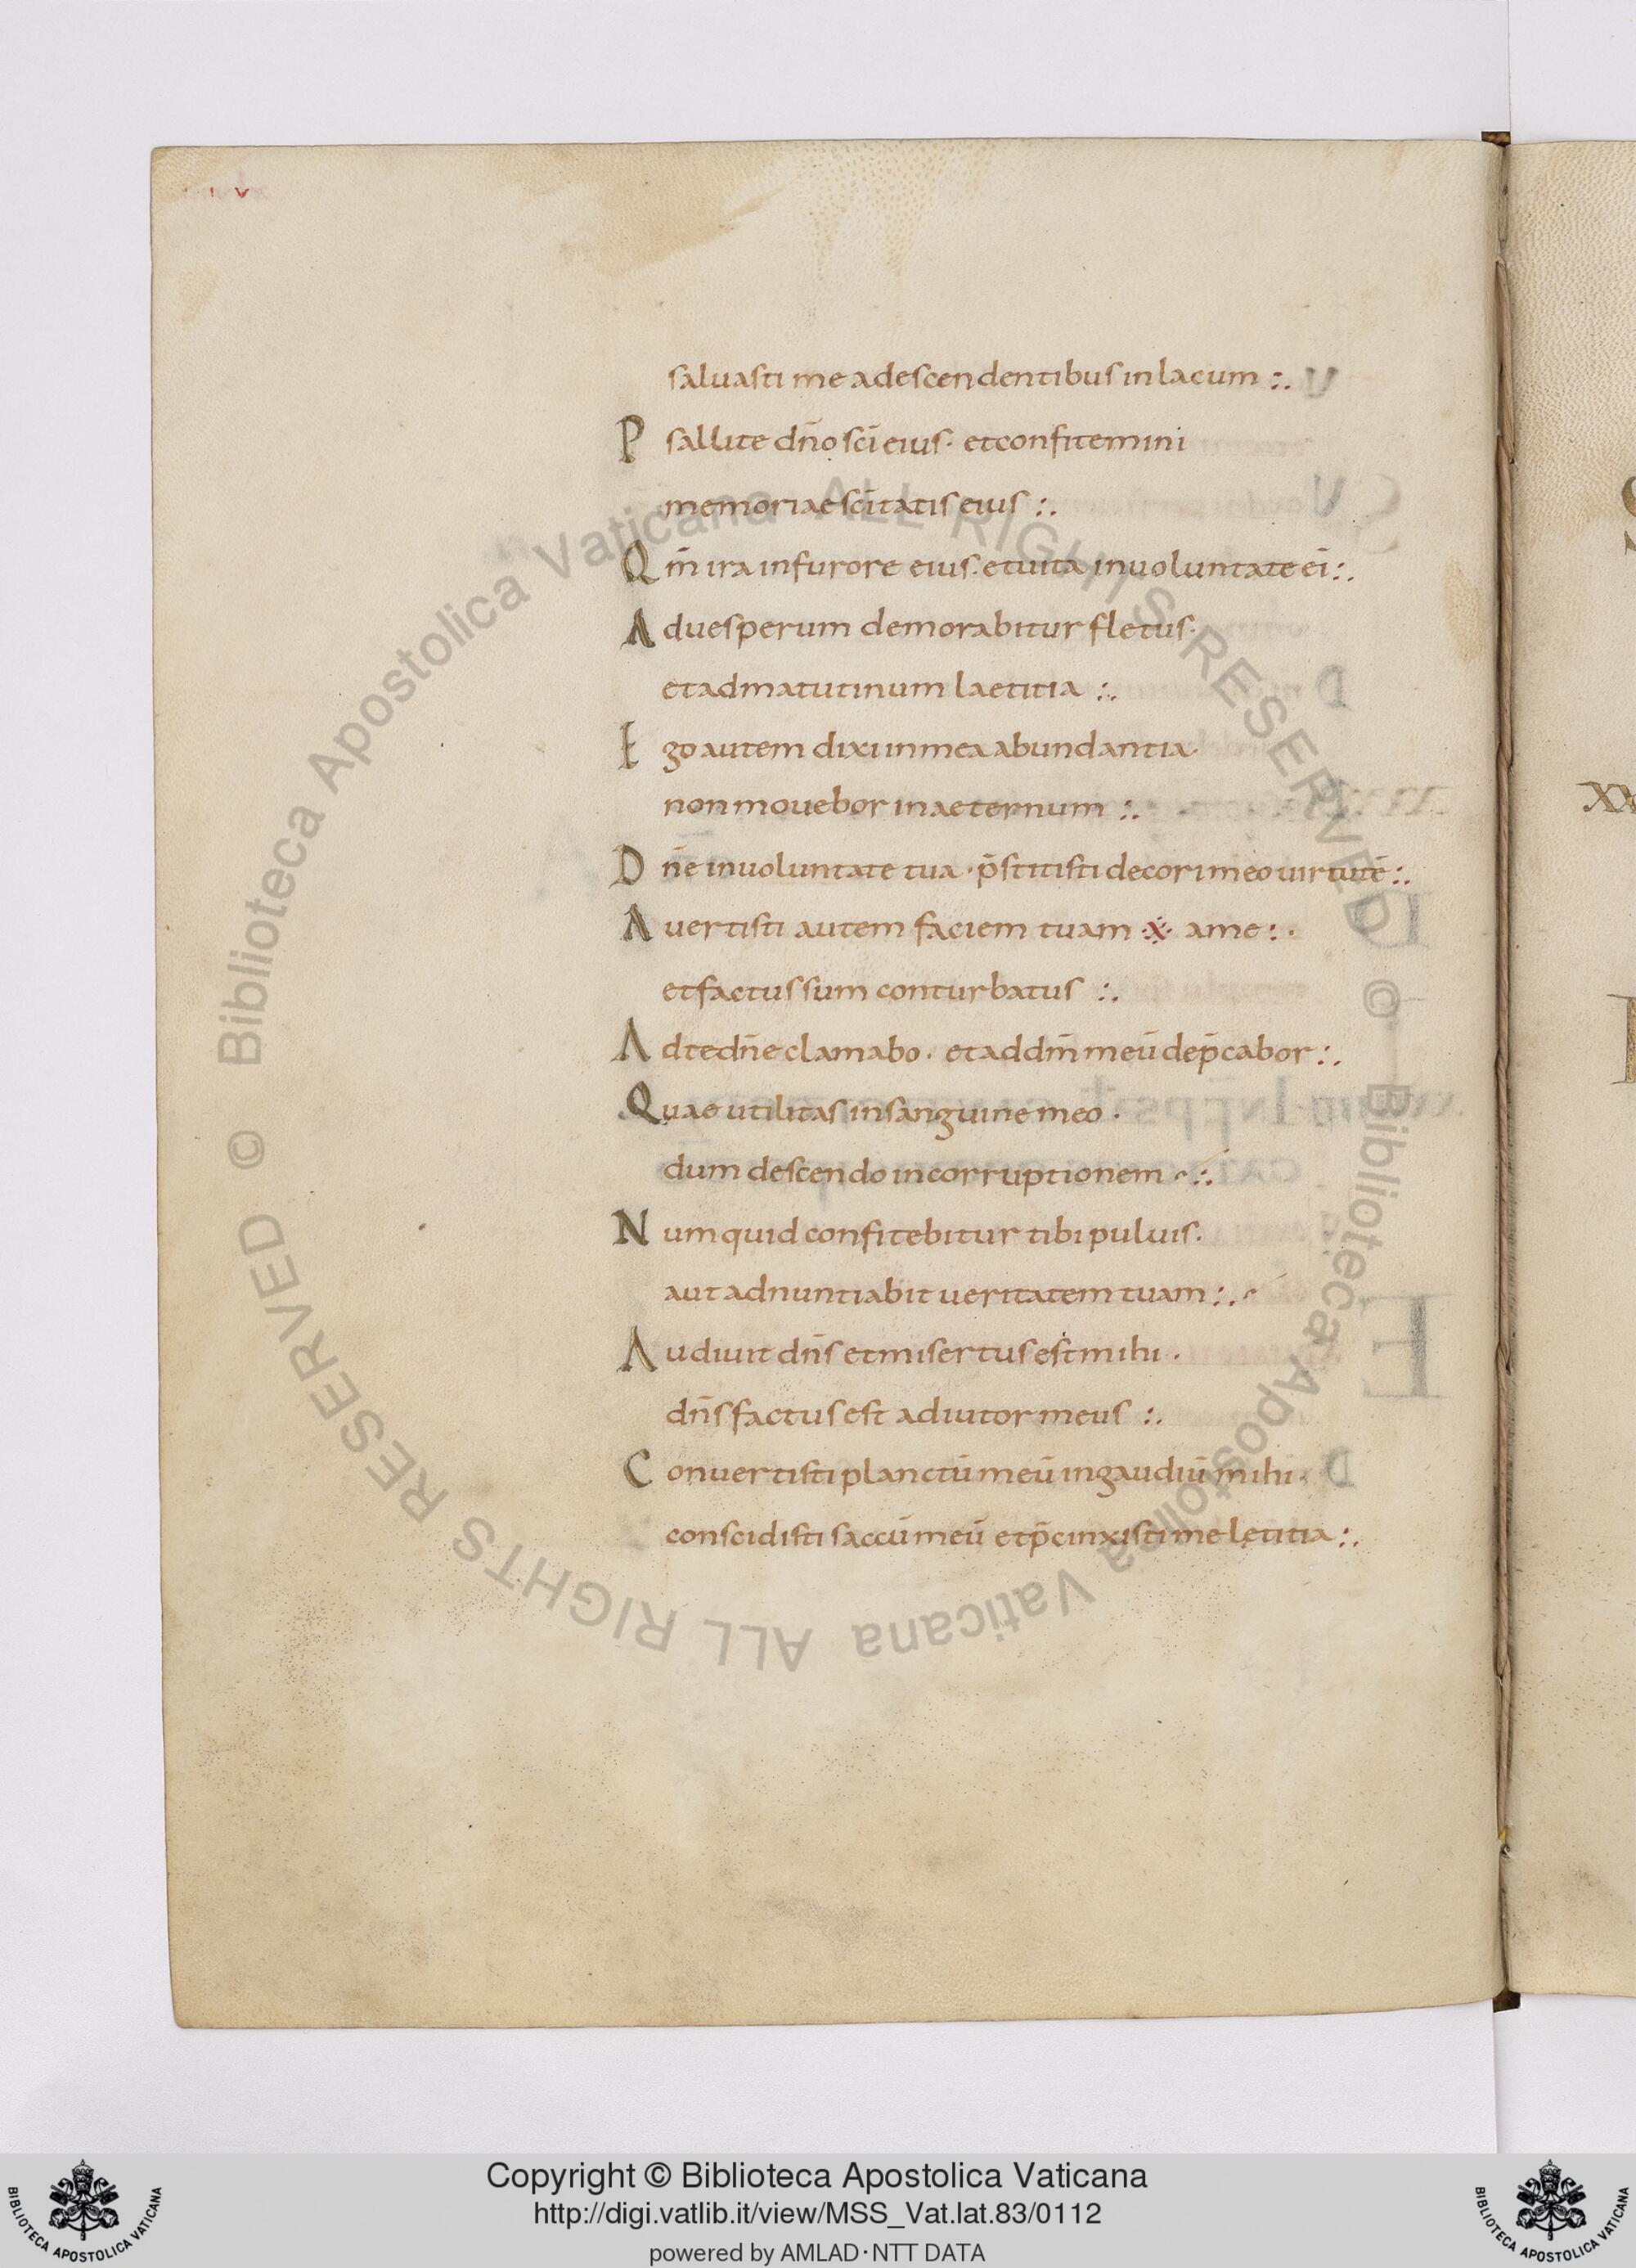 saluasti me adescendentibus inlacum :.
P sallite dn̄o sc̄i eius · etconfitemini
memoriae sc̄itatis eius :.
Q m̄ ira infurore eius · etuita inuoluntate eī :.
A duesperum demorabitur fletus ·
etadmatutinum laetitia :.
E go autem dixi inmea abundantia ·
non mouebor inaeternum :.
D n̄e inuoluntate tua · p̄stitisti decori meo uirtutē :.
A uertisti autem faciem tuam ·x· ame :.
etfactus sum conturbatus :.
A dte dn̄e clamabo · et addm̄ meū dep̄cabor :.
Q uae utilitas insanguine meo ·
dum descendo incorruptionem :.
N umquid confitebitur tibi puluis ·
aut adnuntiabit ueritatem tuam :.
A udiuit dn̄s etmisertus est mihi ·
dn̄s factus est adiutor meus :.
C onuertisti planctū meū ingaudiū mihi ·
conscidisti saccū meū etp̄cinxisti me lętitia :.
© Biblioteca Apostolica Vaticana ALL RIGHTS RESERVED © Biblioteca Apostolica Vaticana ALL RIGHTS RESERVED
Copyright © Biblioteca Apostolica Vaticana
http://digi.vatlib.it/view/MSS_Vat.lat.83/0112
powered by AMLAD·NTT DATA
BIBLIOTECA APOSTOLICA VATICANA
BIBLIOTECA APOSTOLICA VATICANA